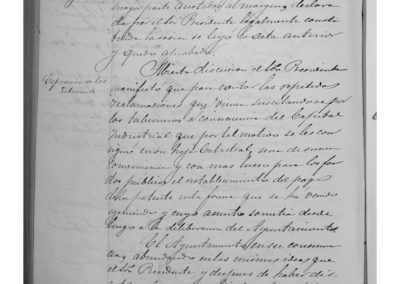 mayor parte anotados al margen, declara
da por el Sor Presidente legalmente consti
tuida la sesion se leyó la acta anterior
y quedó aprobada.
Abierta discusion el Sor Presidente
manifestó que para evitar las repetidas
reclamaciones que vienen suscitandose por
los taberneros a consecuencia del Capital
industrial que por tal motivo se les con
signa en su hoja Catastral, seria de suma
conveniencia y con mas lucro para los fon
dos publicos el restablecimiento del pago
de la patente en la forma que se ha venido
y cuyo asunto sometia desde
luego a la deliberacion del Ayuntamiento
El Ayuntamiento en su consecuen
cia, abundando en las mismas ideas que
el Sor Presidente y despues de haber dis